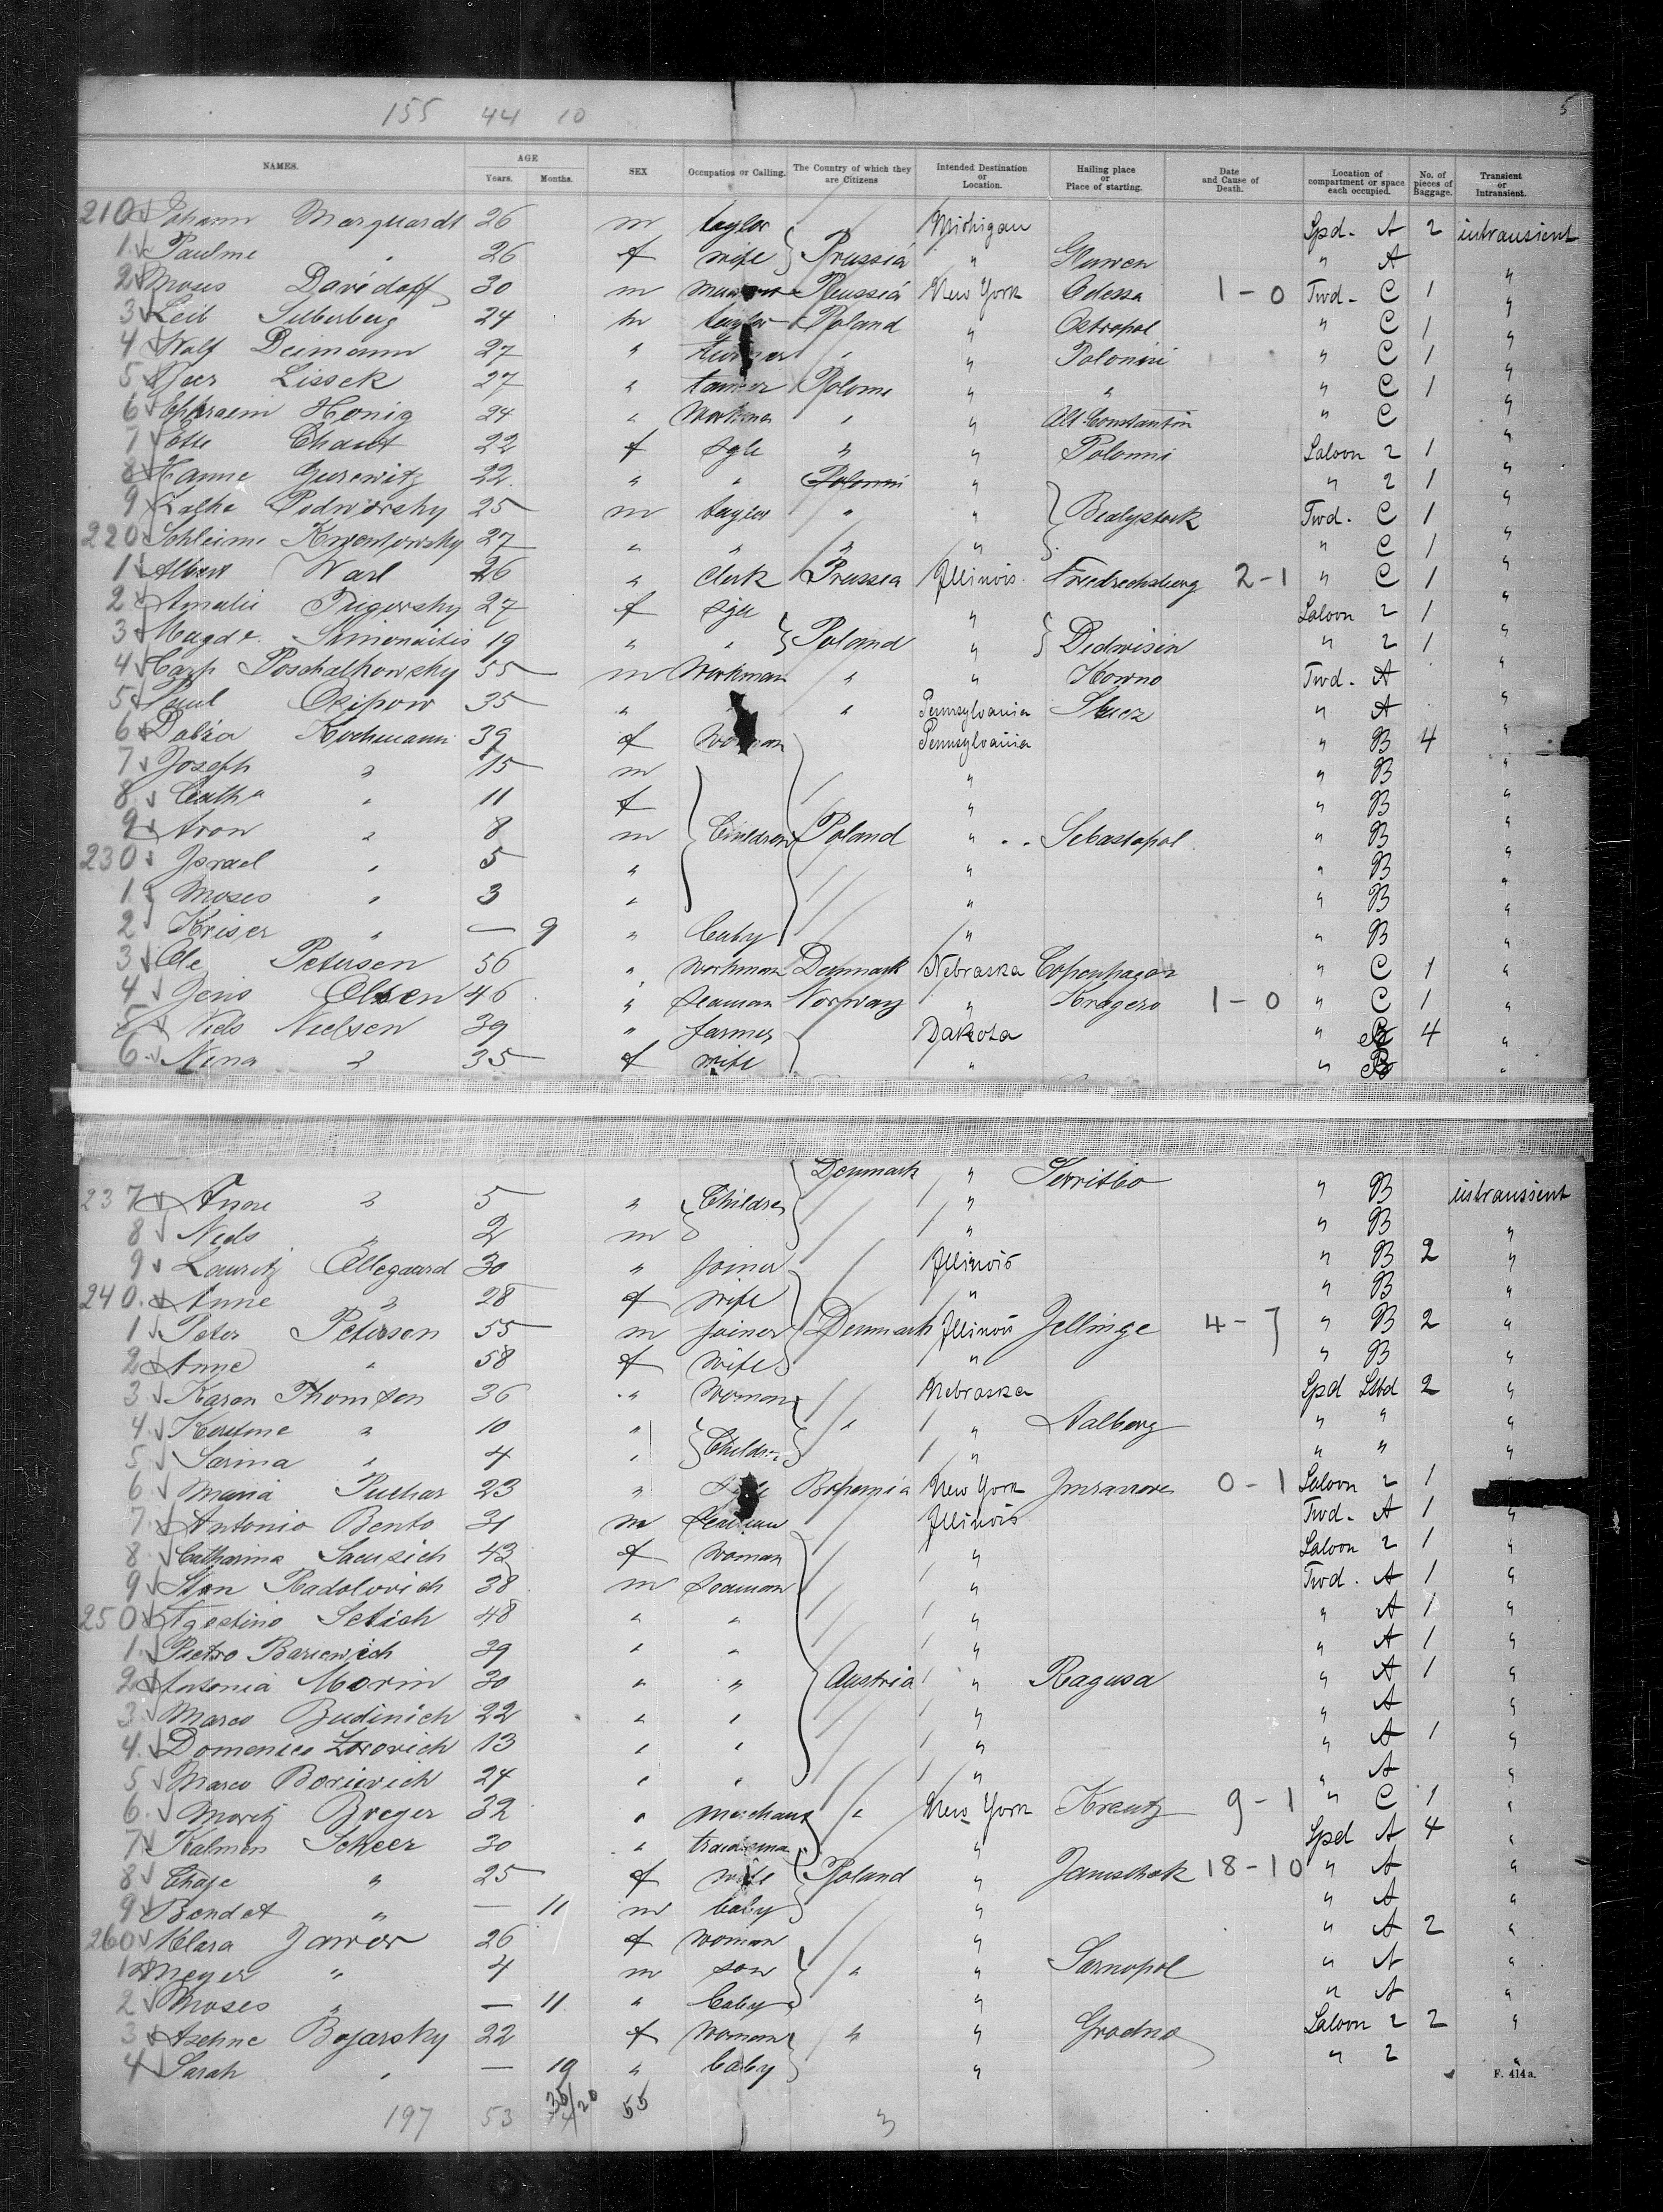 155 44 10 5
NAMES. AGE Years. Months. SEX Occupation or Calling. The Country of which they are Citizens Intended Destination or Location. Hailing place or Place of starting. Date and Cause of Death. Location of compartment or space each occupied. No. of pieces of Baggage. Transient or Intransient.
210 Johann Marquardt 26 m taylor Michigan Spd. A 2 intransient
1 Pauline " 26 f wife Prussia " " A "
2 Moses Davidoff 30 m Russia New York Odessa 1-0 Twd. C 1 "
3 Leib Silberberg 24 m taylor Poland " Ostropol " C 1 "
4 Wolf Deimann 27 " " " Polonni " C 1 "
5 Lissek 27 " tanner " " " C 1 "
6 Ephraem Honig 24 " Workman " " Alt Constantin " C "
7 Ette 22 f sgle " " Polonni Saloon 2 1 "
8 Hanne Gurewitz 22 " " Polonni " " 2 1 "
9 Podworsky 25 m taylor " " Bialystock Twd. C 1 "
220 Schleime 27 " " " " " C 1 "
1 Albert Warl 26 " Clerk Prussia Illinois Friedrichsburg 2-1 " C 1 "
2 Amalie 27 f sgle " Saloon 2 1 "
3 Magde. Simonaitis 19 " " Poland " " 2 1 "
4 Poschalkowsky 55 m Workman " " Kowno Twd. A "
5 Paul Osipow 35 " " Pennsylvania " A "
6 Kochmann 39 f Woman Pennsylvania " B 4 "
7 Joseph " 15 m " " B "
8 " 11 f " " B "
9 Aron " 8 m Children Poland " Sebastopol " B "
230 Israel " 5 " " " B "
1 Moses " 3 " " " B "
2 " — 9 " baby " " B "
3 Ole Petersen 56 " workman Denmark Nebraska Copenhagen " C 1 "
4 Jens Olsen 46 " seaman Norway " Kragero 1-0 " C 1 "
5 Niels Nielsen 39 " farmer Dakota " B 4 "
6 Nina " 35 f wife " " B "
Denmark "
237 " 5 " Children " " B intransient
8 Niels " 2 m " " B "
9 Lauritz Ollegaard 30 " joiner Illinois " B 2 "
240 Anne " 28 f wife " " B "
1 Peter Petersen 55 m joiner Denmark Illinois Jellinge 4-7 " B 2 "
2 Anne " 58 f wife " " B "
3 Karen Thomsen 36 " woman Nebraska Spd Stbd 2 "
4 Kerstine " 10 " " " Aalborg " " "
5 Sarina " 4 " Children " " " "
6 Maria Puchar 23 " Bohemia New York 0-1 Saloon 2 1
7 Antonio Bento 31 m seaman Illinois Twd. A 1 "
8 Catharina 43 f woman " Saloon 2 1 "
9 Radolovich 38 m seaman " Twd. A 1 "
250 Agostino Setich 48 " " " " A 1 "
1 Pietro Bariewich 39 " " " " A 1 "
2 Antonia Morin 30 " " Austria " Ragusa " A 1 "
3 Marco Budinich 22 " " " " A "
4 Domenico Zorovich 13 " " " " A 1 "
5 Marco Borievich 24 " " " " A "
6 Moritz Breger 32 " merchant " New York Kreutz 9-1 " C 1 "
7 Kalmen Scheer 30 " " Spd A 4 "
8 Chaje " 25 f wife Poland " Janischok 18-10 " A "
9 Bendet " — 11 m baby " " A "
260 Klara Jawor 26 f woman " " A 2 "
1 Meyer " 4 m son " " Tarnopol " A "
2 Moses " — 11 " baby " " A "
3 Bojarsky 22 f woman " " Grodno Saloon 2 2 "
4 Sarah " — 10 " baby " " 2 "
F. 414a.
197 53 55 3